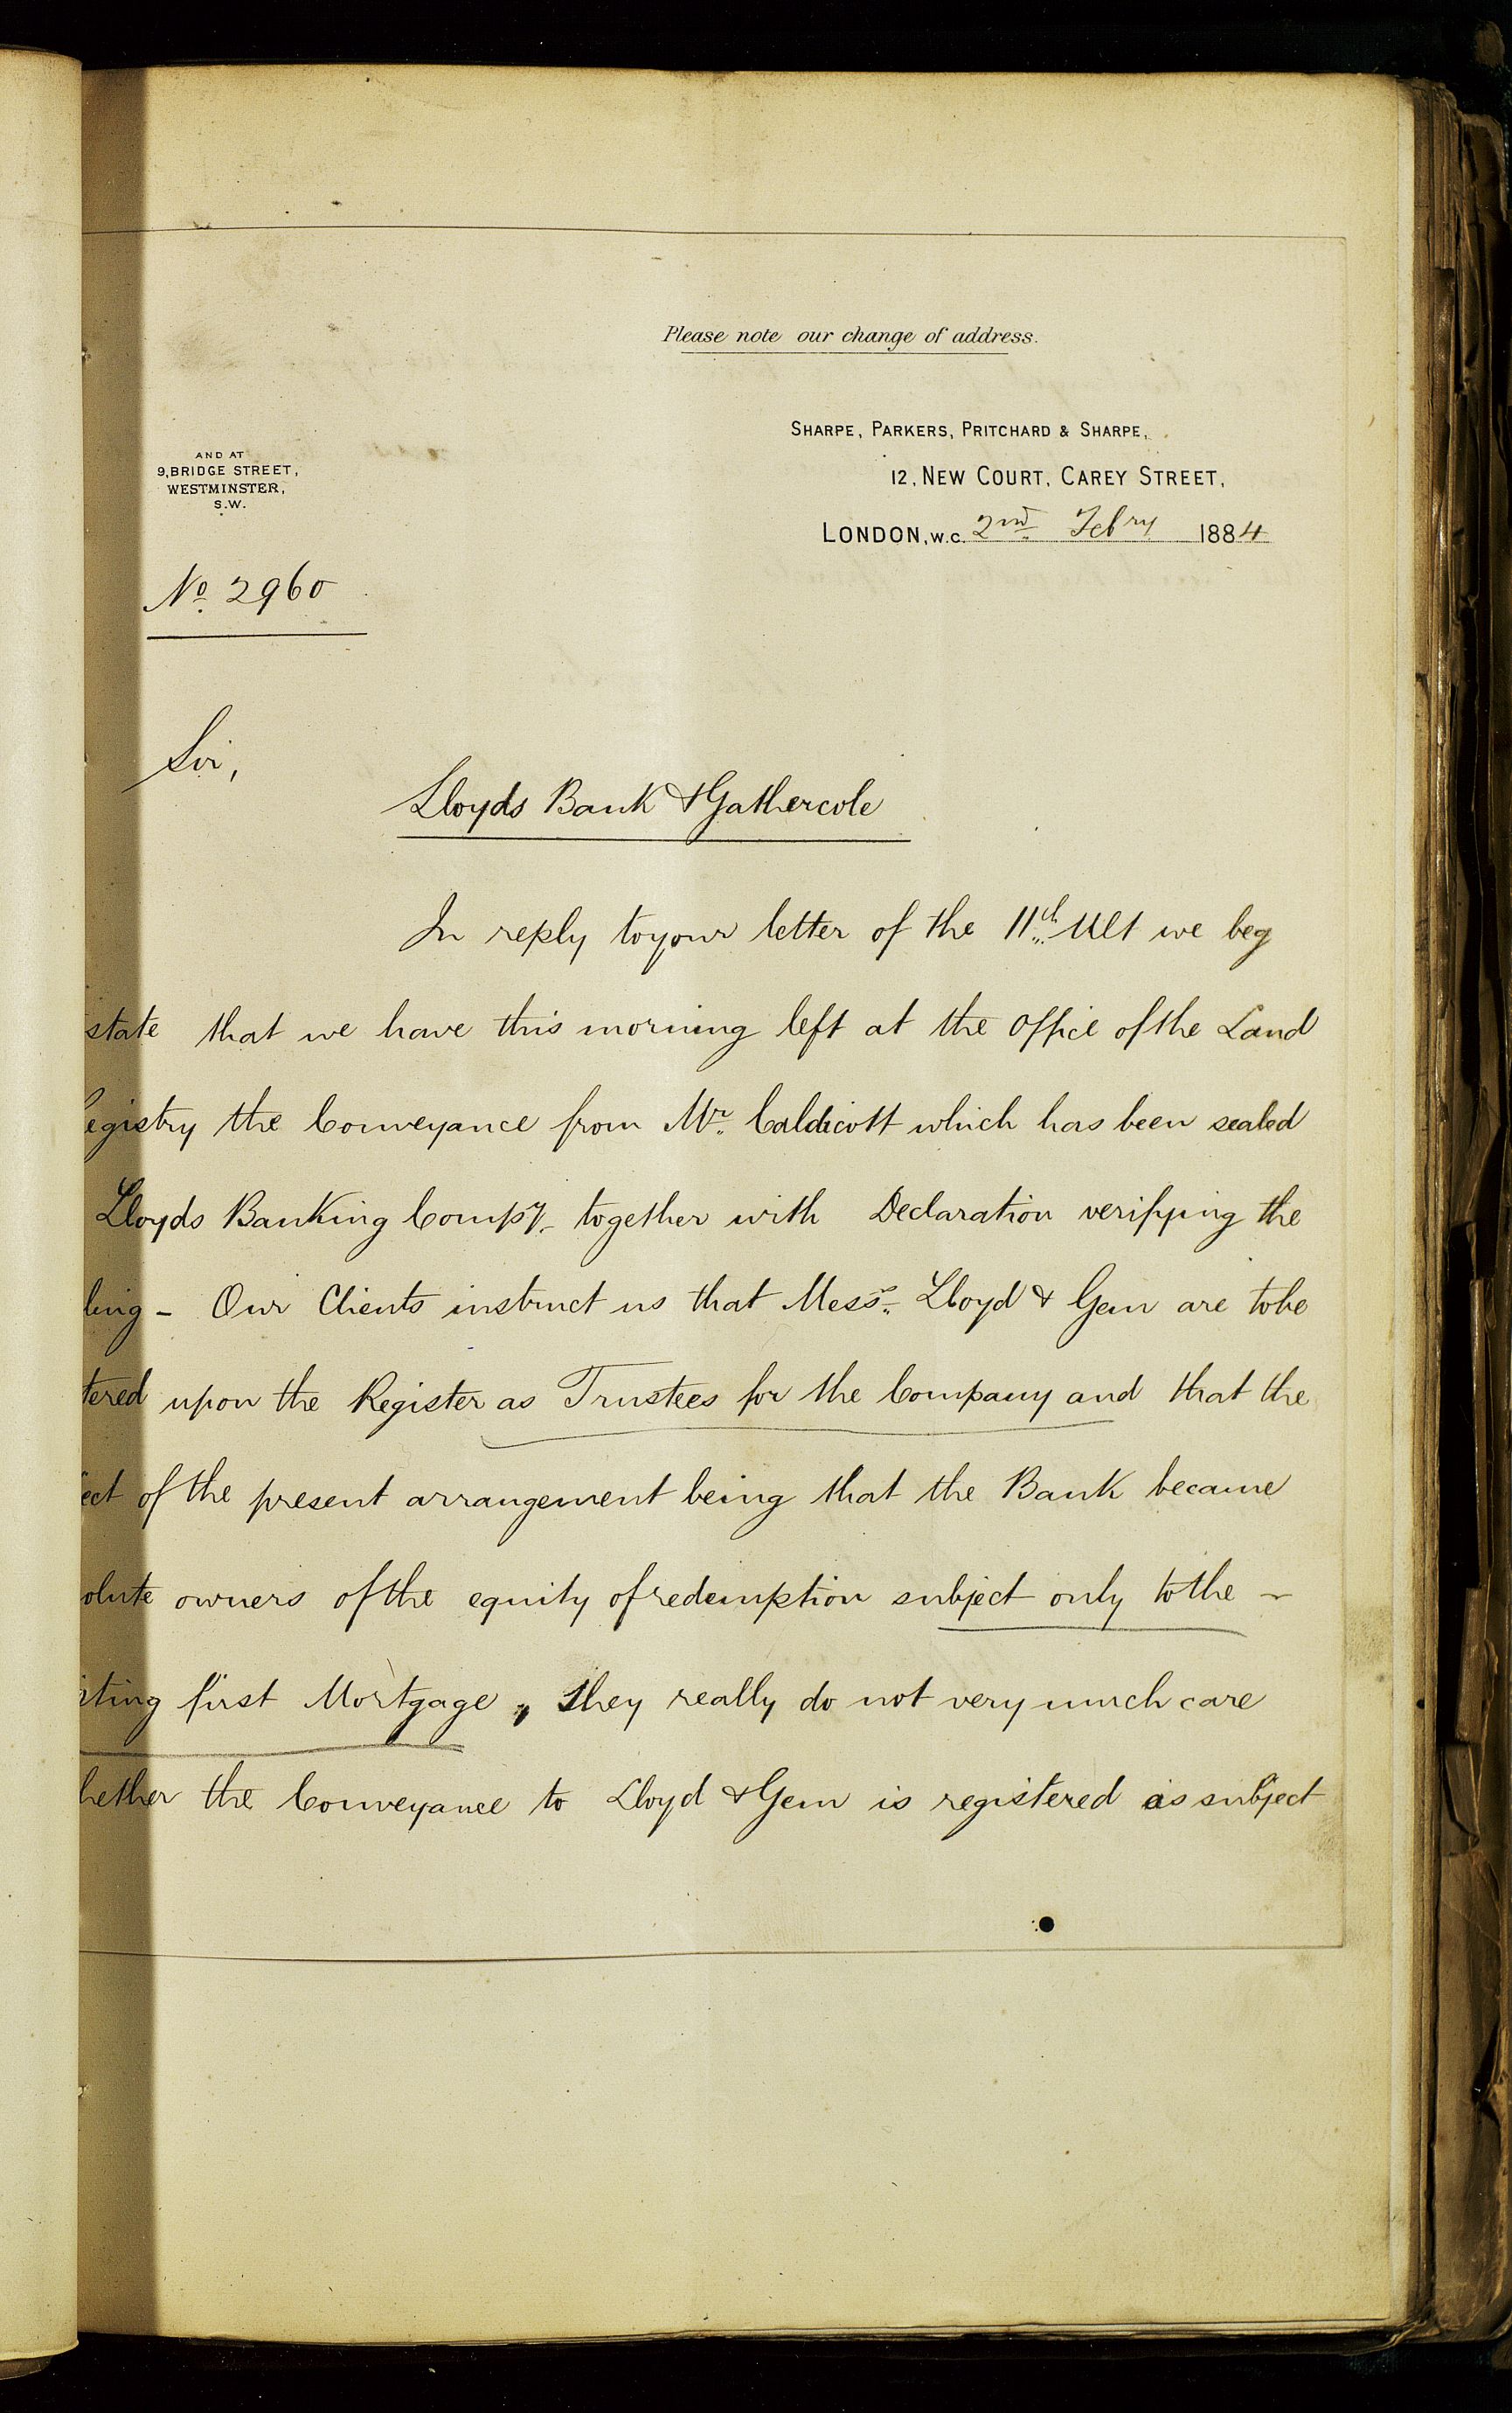 Please note our change of address.
SHARPE, PARKERS, PRITCHARD & SHARPE,
12, NEW COURT, CAREY STREET,
LONDON, W.C. 2nd Febry 1884
AND AT
9, BRIDGE STREET,
WESTMINSTER,
S.W.
No. 2960
Sir,
Lloyds Bank & Gathercole
In reply to your letter of the 11th Ult we beg
state that we have this morning left at the office of the Land
egistry the Conveyance from Mr. Caldicott which has been sealed
Lloyds Banking Compy. together with Declaration verifying the
ling - Our Clients instruct us that Messrs. Lloyd & Gem are to be
tered upon the Register as Trustees for the Company and that the
ect of the present arrangement being that the Bank became
olute owners of the equity of redemption subject only to the -
sting first Mortgage, they really do not very much care
hether the Conveyance to Lloyd & Gem is registered as subject